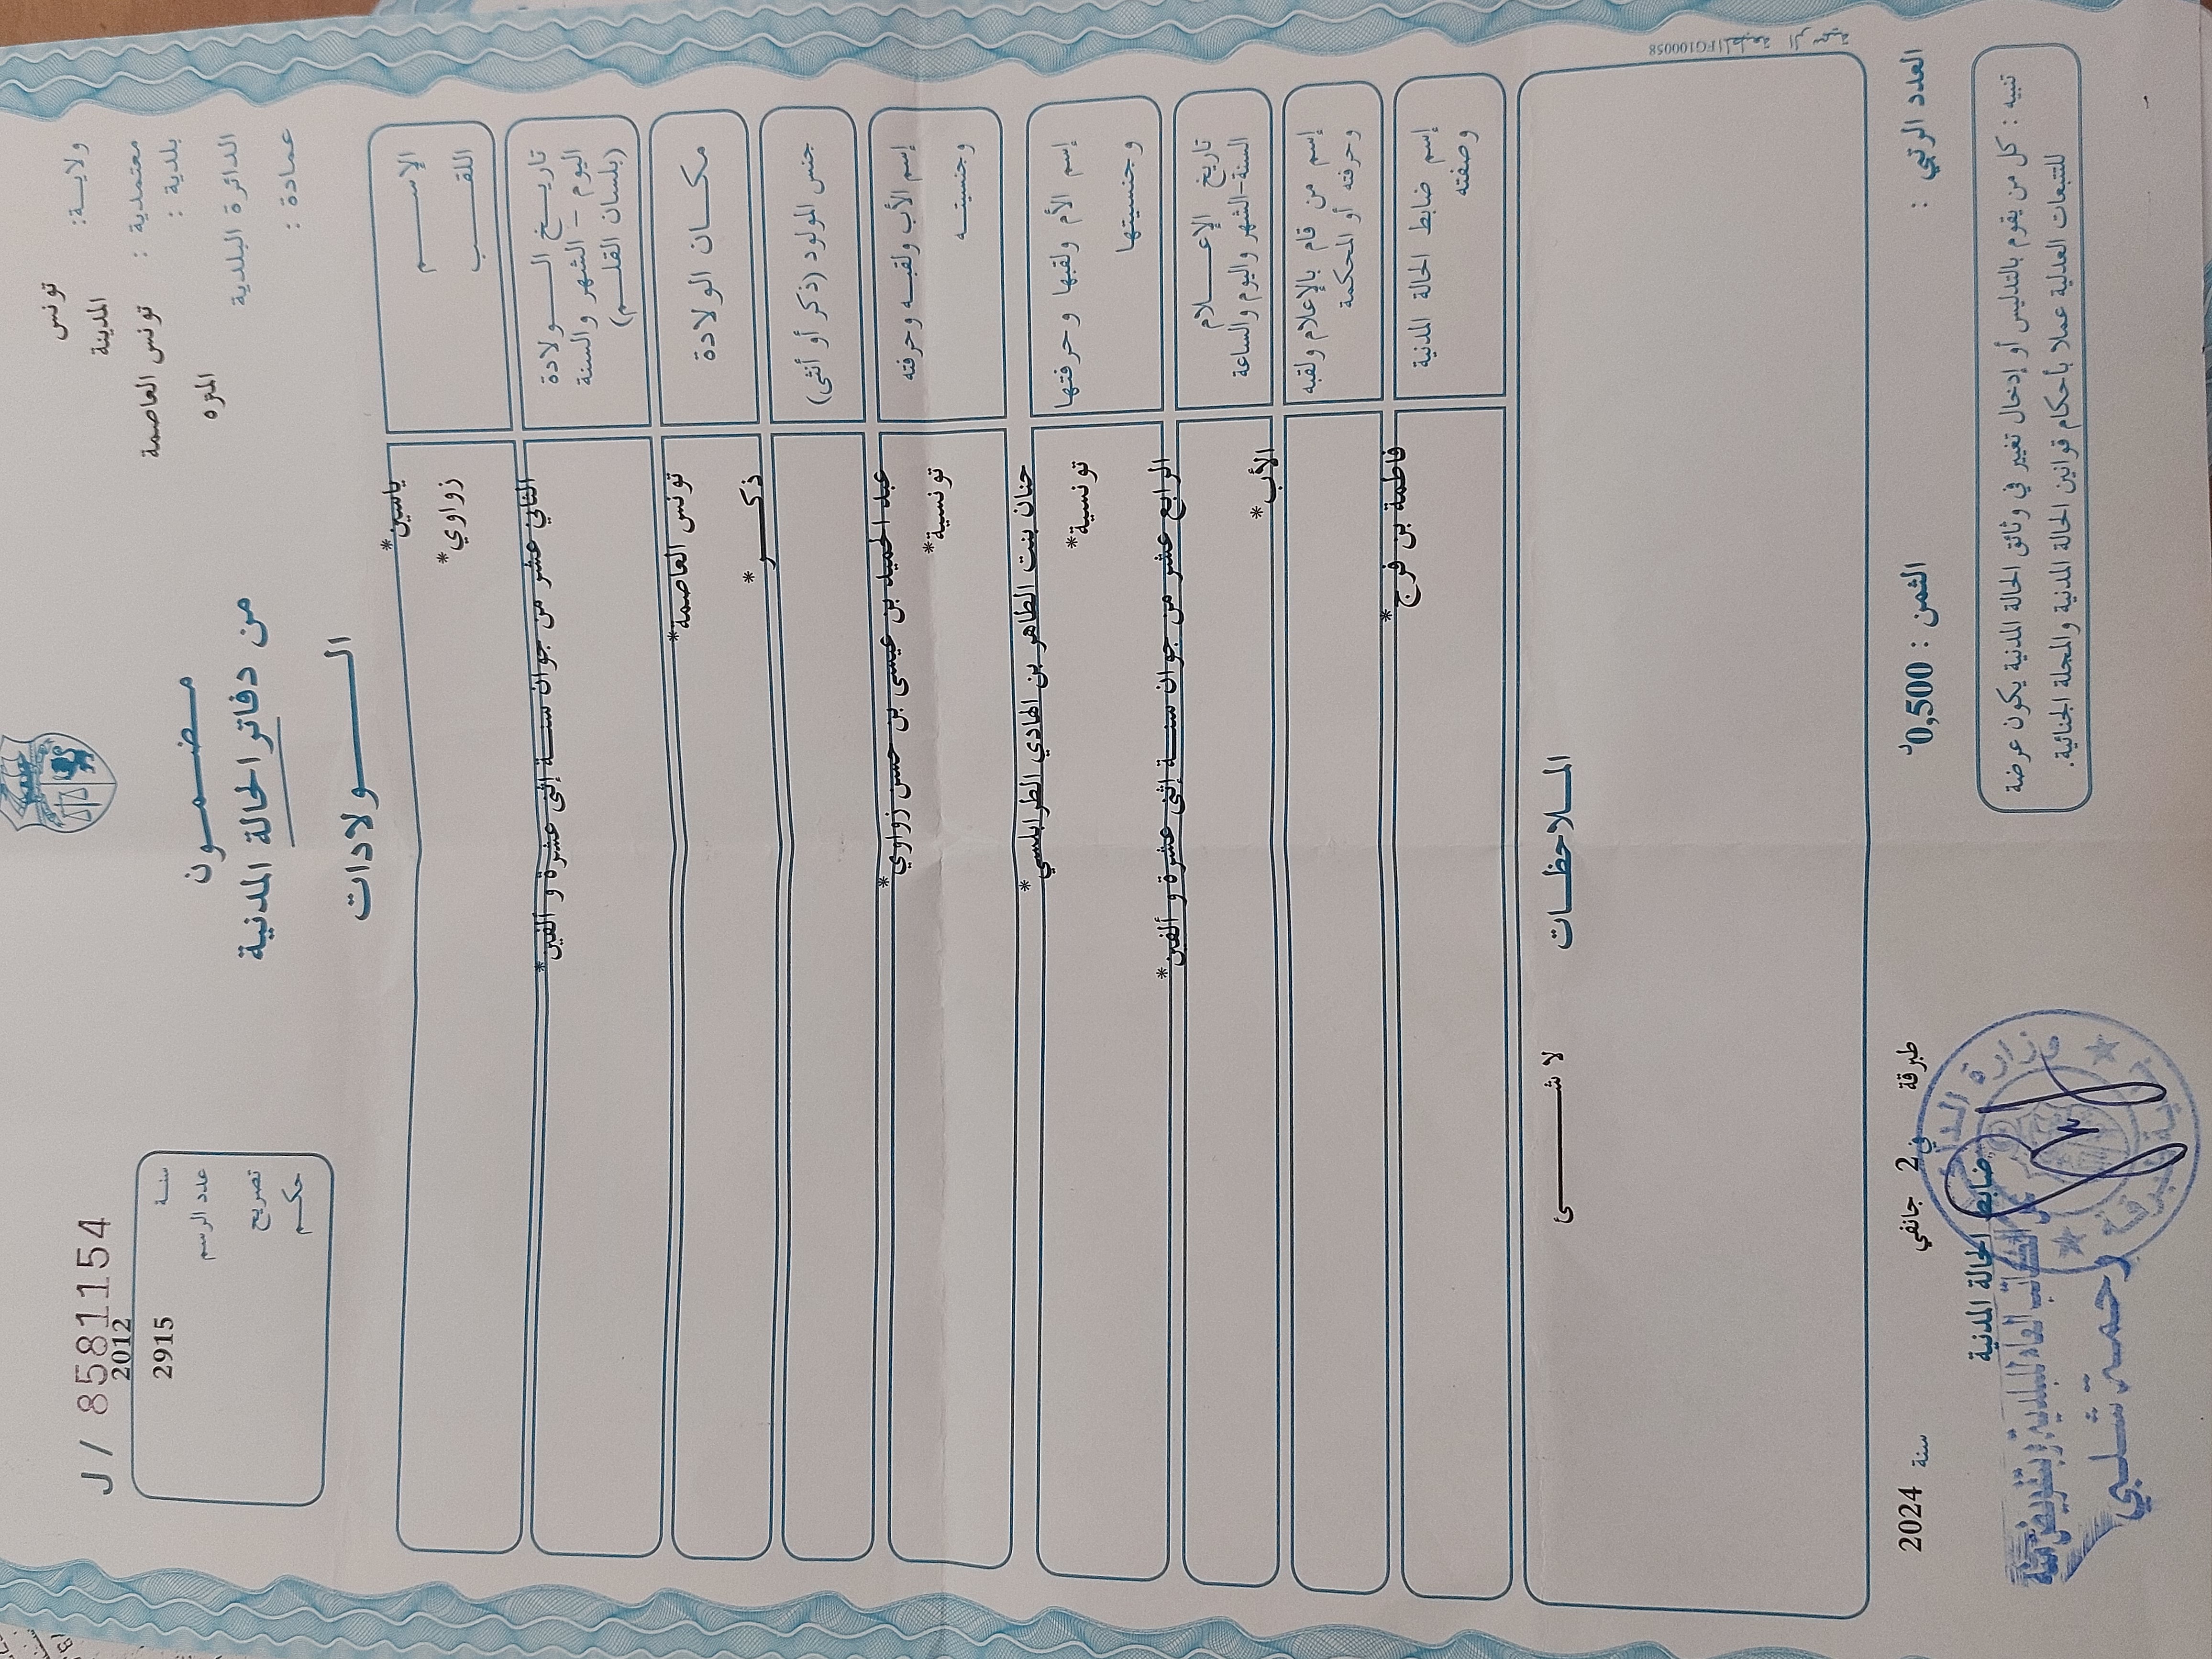 J / 8581154
ولايـــة: تونس
المدينة
معتمدية :
بلدية : تونس العاصمة
الدائرة البلدية المنزه
عمادة :
2012
سنـــة
2915
عدد الرسم
تصريح
حكـــم
مـــضـــمـــون
من دفاتر الحالة المدنية
الـــــولادات
الإســـــم
ياسين*
اللقـــــب
زواوي*
تاريـــخ الـــــولادة
اليوم - الشهر والسنة
(بلسان القلـــم)
الثاني عشر من جوان سنـــة إثنى عشرة و ألفين*
مكـــان الولادة
تونس العاصمة*
جنس المولود (ذكر أو أنثى)
ذكـــــر*
إسم الأب ولقبـــه وحرفته
عبد الحميد بن عيسى بن حسن زواوي*
وجنسيتـــه
تونسية*
إسم الأم ولقبها وحرفتها
حنان بنت الطاهر بن الهادي الطرابلسي*
وجنسيتها
تونسية*
تاريخ الإعـــــلام
السنة-الشهر واليوم والساعة
الرابع عشر من جوان سنـــة إثنى عشرة و ألفين*
إسم من قام بالإعلام ولقبه
وحرفته أو المحكمة
الأب*
إسم ضابط الحالة المدنية
وصفته
فاطمة بن فرج*
المـــلاحظـــات
لا شـــــئ
المطبعة الرسمية FG100058
العدد الرتبي :
الثمن : 0,500د
طبرقة في 2 جانفي سنة 2024
ضابط الحالة المدنية
تنبيه : كل من يقوم بالتدليس أو إدخال تغيير في وثائق الحالة المدنية يكون عرضة
للتتبعات العدلية عملا بأحكام قوانين الحالة المدنية والمجلة الجنائية.